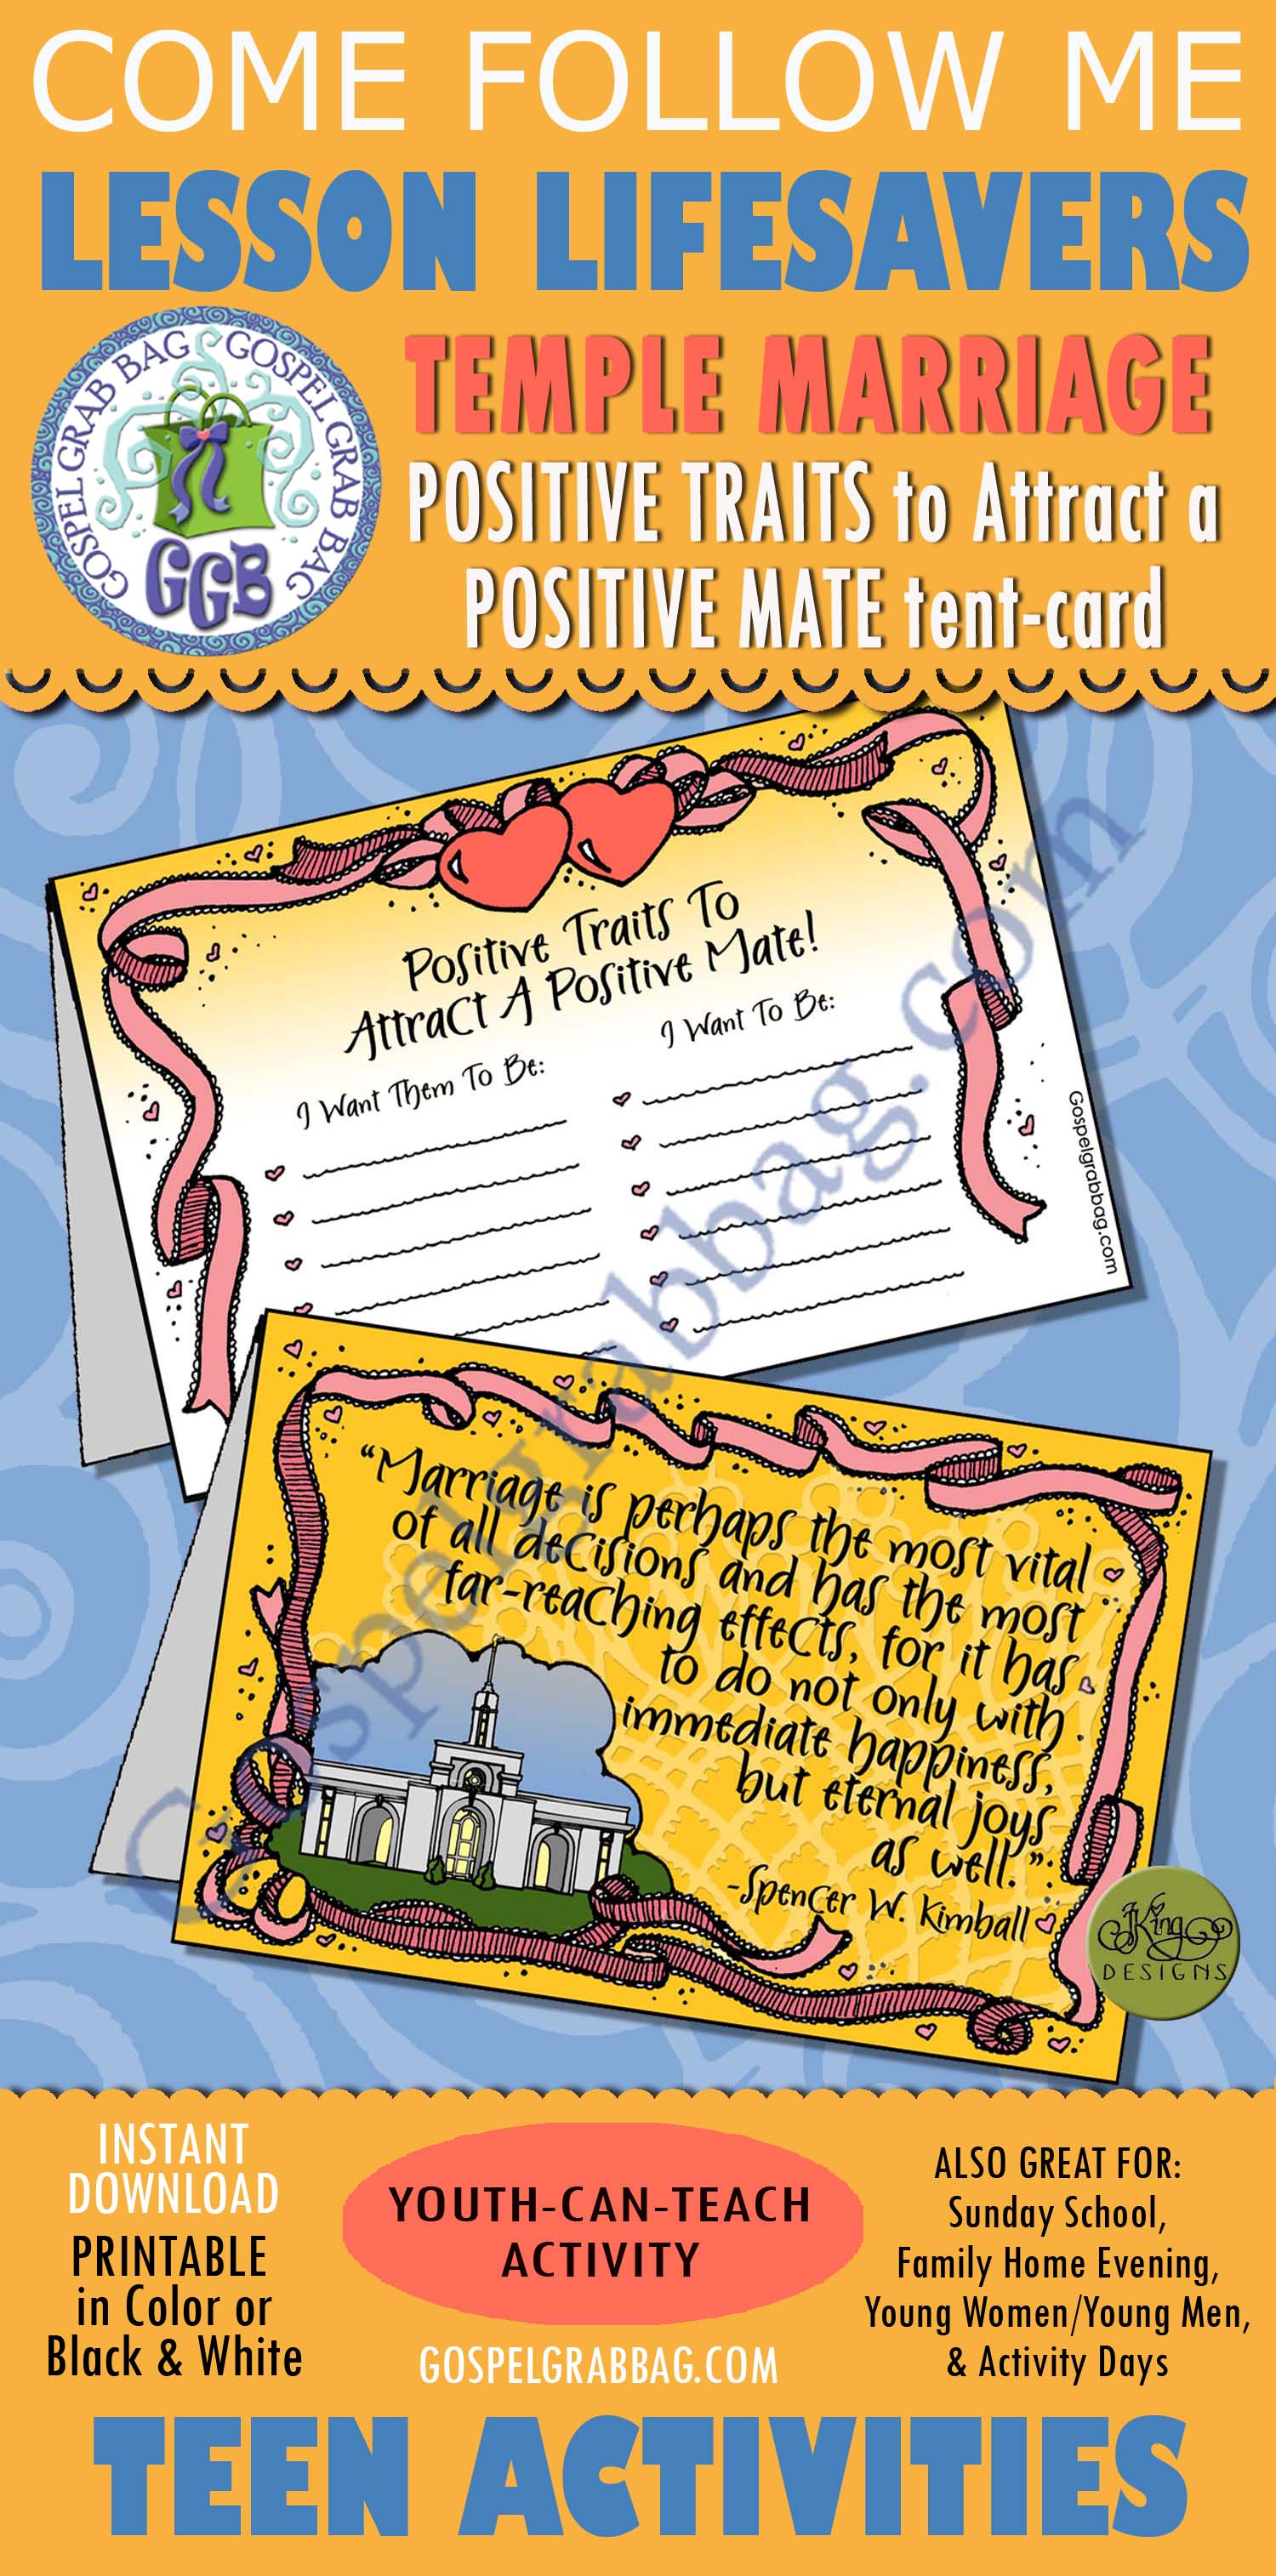 COME FOLLOW ME
LESSON LIFESAVERS
GOSPEL GRAB BAG GOSPEL GRAB BAG
GGB
TEMPLE MARRIAGE
POSITIVE TRAITS to Attract a
POSITIVE MATE tent-card
Positive Traits To
Attract A Positive Mate!
I Want Them To Be:
I Want To Be:
Gospelgrabbag.com
Gospelgrabbag.com
“Marriage is perhaps the most vital
of all decisions and has the most
far-reaching effects, for it has
to do not only with
immediate happiness,
but eternal joys
as well.”
-Spencer W. Kimball
JKing
DESIGNS
INSTANT
DOWNLOAD
PRINTABLE
in Color or
Black & White
YOUTH-CAN-TEACH
ACTIVITY
GOSPELGRABBAG.COM
ALSO GREAT FOR:
Sunday School,
Family Home Evening,
Young Women/Young Men,
& Activity Days
TEEN ACTIVITIES